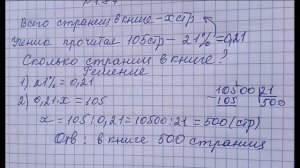 Всего страниц в книге - x стр
Ученик прочитал 105 стр - 21% = 0,21
Сколько страниц в книге?
Решение
1) 21% = 0,21
2) 0,21·x = 105
x = 105 : 0,21 = 10500 : 21 = 500 (стр)
10500 21
105 500
Отв: в книге 500 страниц